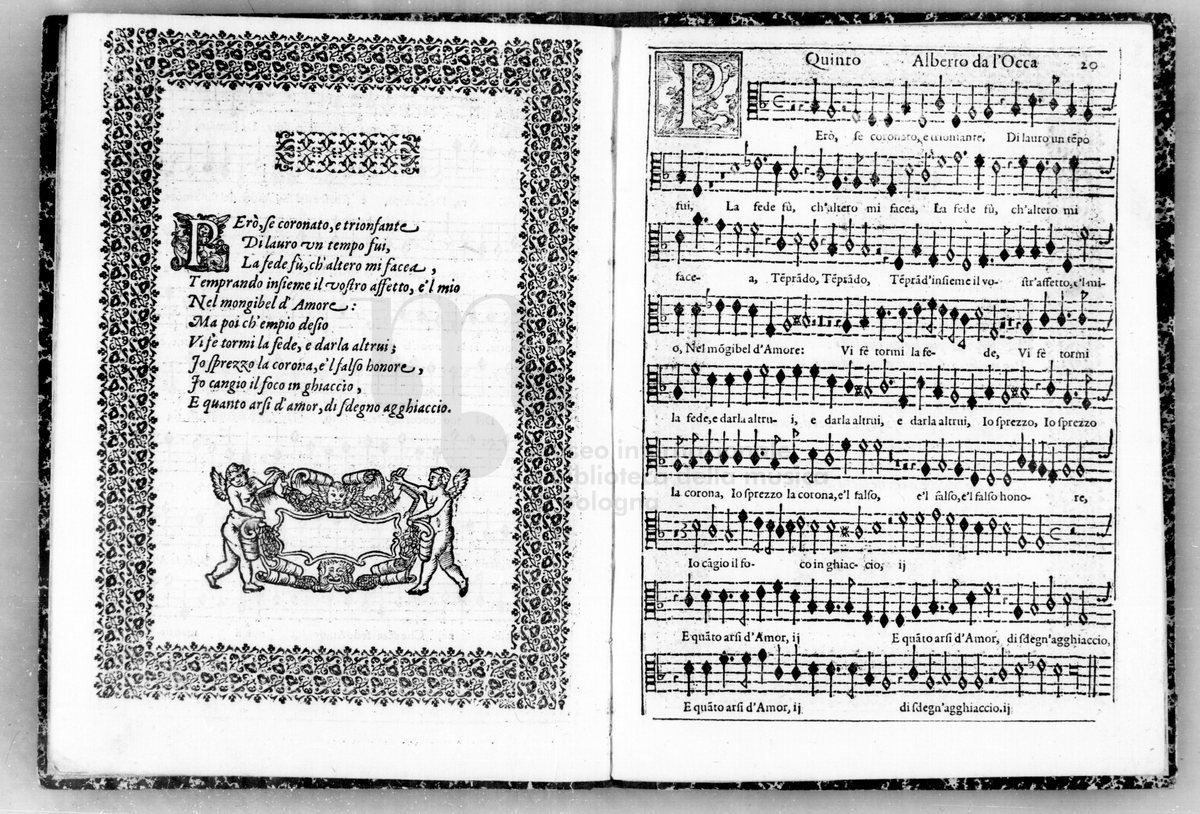 PErò, se coronato, e trionfante
Di lauro vn tempo fui,
La fede fù, ch'altero mi facea,
Temprando insieme il vostro affetto, e'l mio
Nel mongibel d'Amore:
Ma poi ch'empio desio
Vi fe tormi la fede, e darla altrui;
Io sprezzo la corona, e'l falso honore,
Io cangio il foco in ghiaccio,
E quanto arsi d'amor, di sdegno agghiaccio.
Quinto Alberto da l'Occa 20
PErò, se coronato, e trionfante, Di lauro un tẽpo
fui, La fede fù, ch'altero mi facea, La fede fù, ch'altero mi
facea, Tẽprãdo, Tẽprãdo, Tẽprãd'insieme il vostr'affetto, e'l mi-
o, Nel mõgibel d'Amore: Vi fè tormi la fede, Vi fè tormi
la fede, e darla altrui, e darla altrui, e darla altrui, Io sprezzo, Io sprezzo
la corona, Io sprezzo la corona, e'l falso, e'l falso, e'l falso honore,
Io cãgio il foco in ghiaccio, ij
E quãto arsi d'Amor, ij E quãto arsi d'Amor, di sdegn'agghiaccio,
E quãto arsi d'Amor, ij di sdegn'agghiaccio. ij
biblioteca della musica
bologna